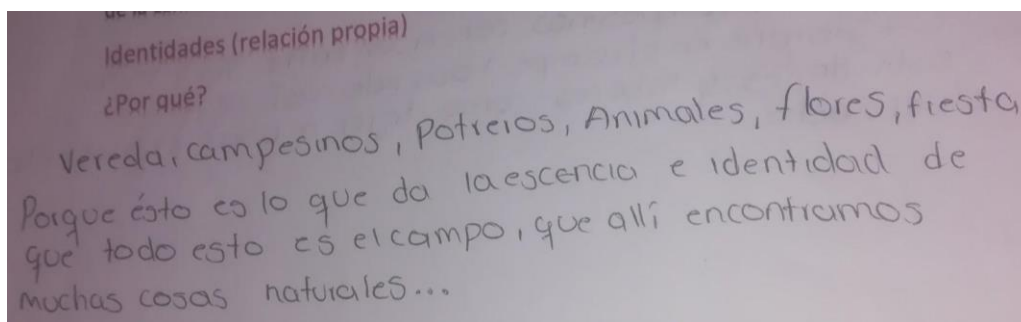 Identidades (relación propia)
¿Por qué?
Vereda, campesinos, Potreros, Animales, flores, fiesta
Porque ésto es lo que da la escencia e identidad de
que todo esto es el campo, que allí encontramos
muchas cosas naturales...